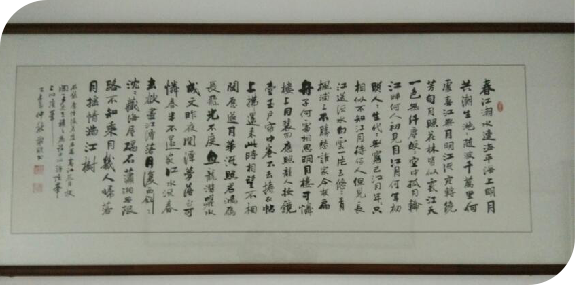 春江潮水連海平海上明月
共潮生灩灩隨波千萬里何
處春江無月明江流宛轉繞
芳甸月照花林皆似霰江天
一色無纖塵皎皎空中孤月輪
江畔何人初見月江月何年初
照人人生代代無窮已江月年年只
相似不知江月待何人但見長
江送流水白雲一片去悠悠青
楓浦上不勝愁誰家今夜扁
舟子何處相思明月樓可憐
樓上月裴回應照離人妝鏡
臺玉戶簾中卷不去擣衣砧
上拂還來此時相望不相
聞願逐月華流照君鴻雁
長飛光不度魚龍潛躍水
成文昨夜閒潭夢落花可
憐春半不還家江水流春
去欲盡江潭落月復西斜斜
沈沈藏海霧碣石瀟湘無限
路不知乘月幾人歸落
月搖情滿江樹